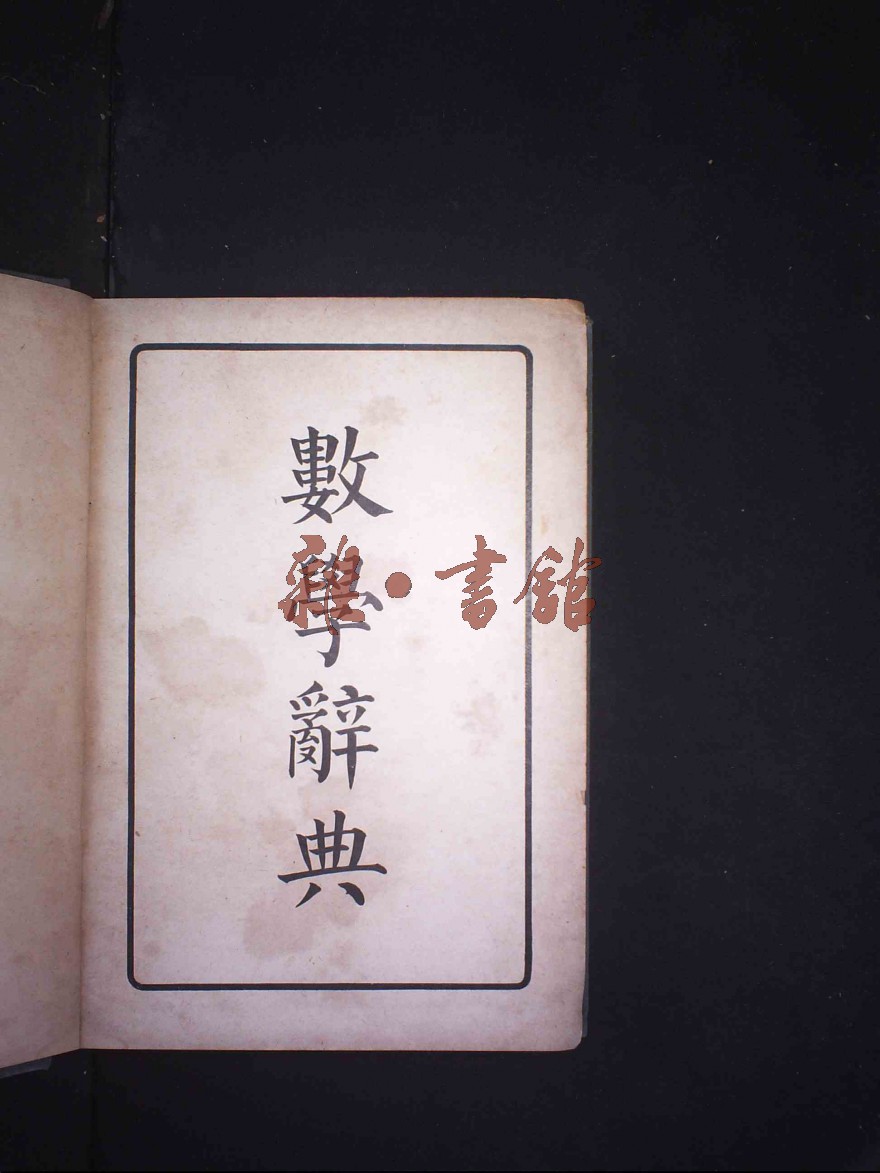 數學辭典
雞•書館